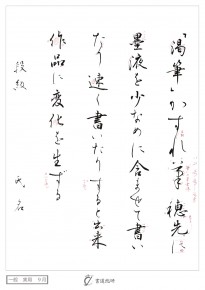 「渇筆」かすれ筆 穂先に
墨液を少なめに含ませて書い
たり速く書いたりすると出来
作品に変化を生ずる
段級 氏名